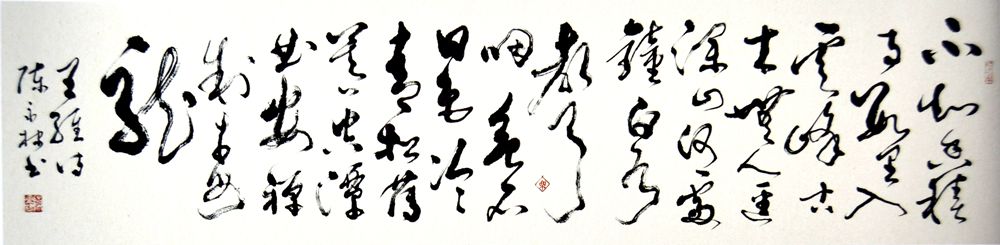 不知香積
寺數里入
雲峰古
木無人徑
深山何處
鐘泉
聲
咽危石
日色冷
青松薄
暮空潭
曲安禪
制毒
龍
王維詩
陳永林書